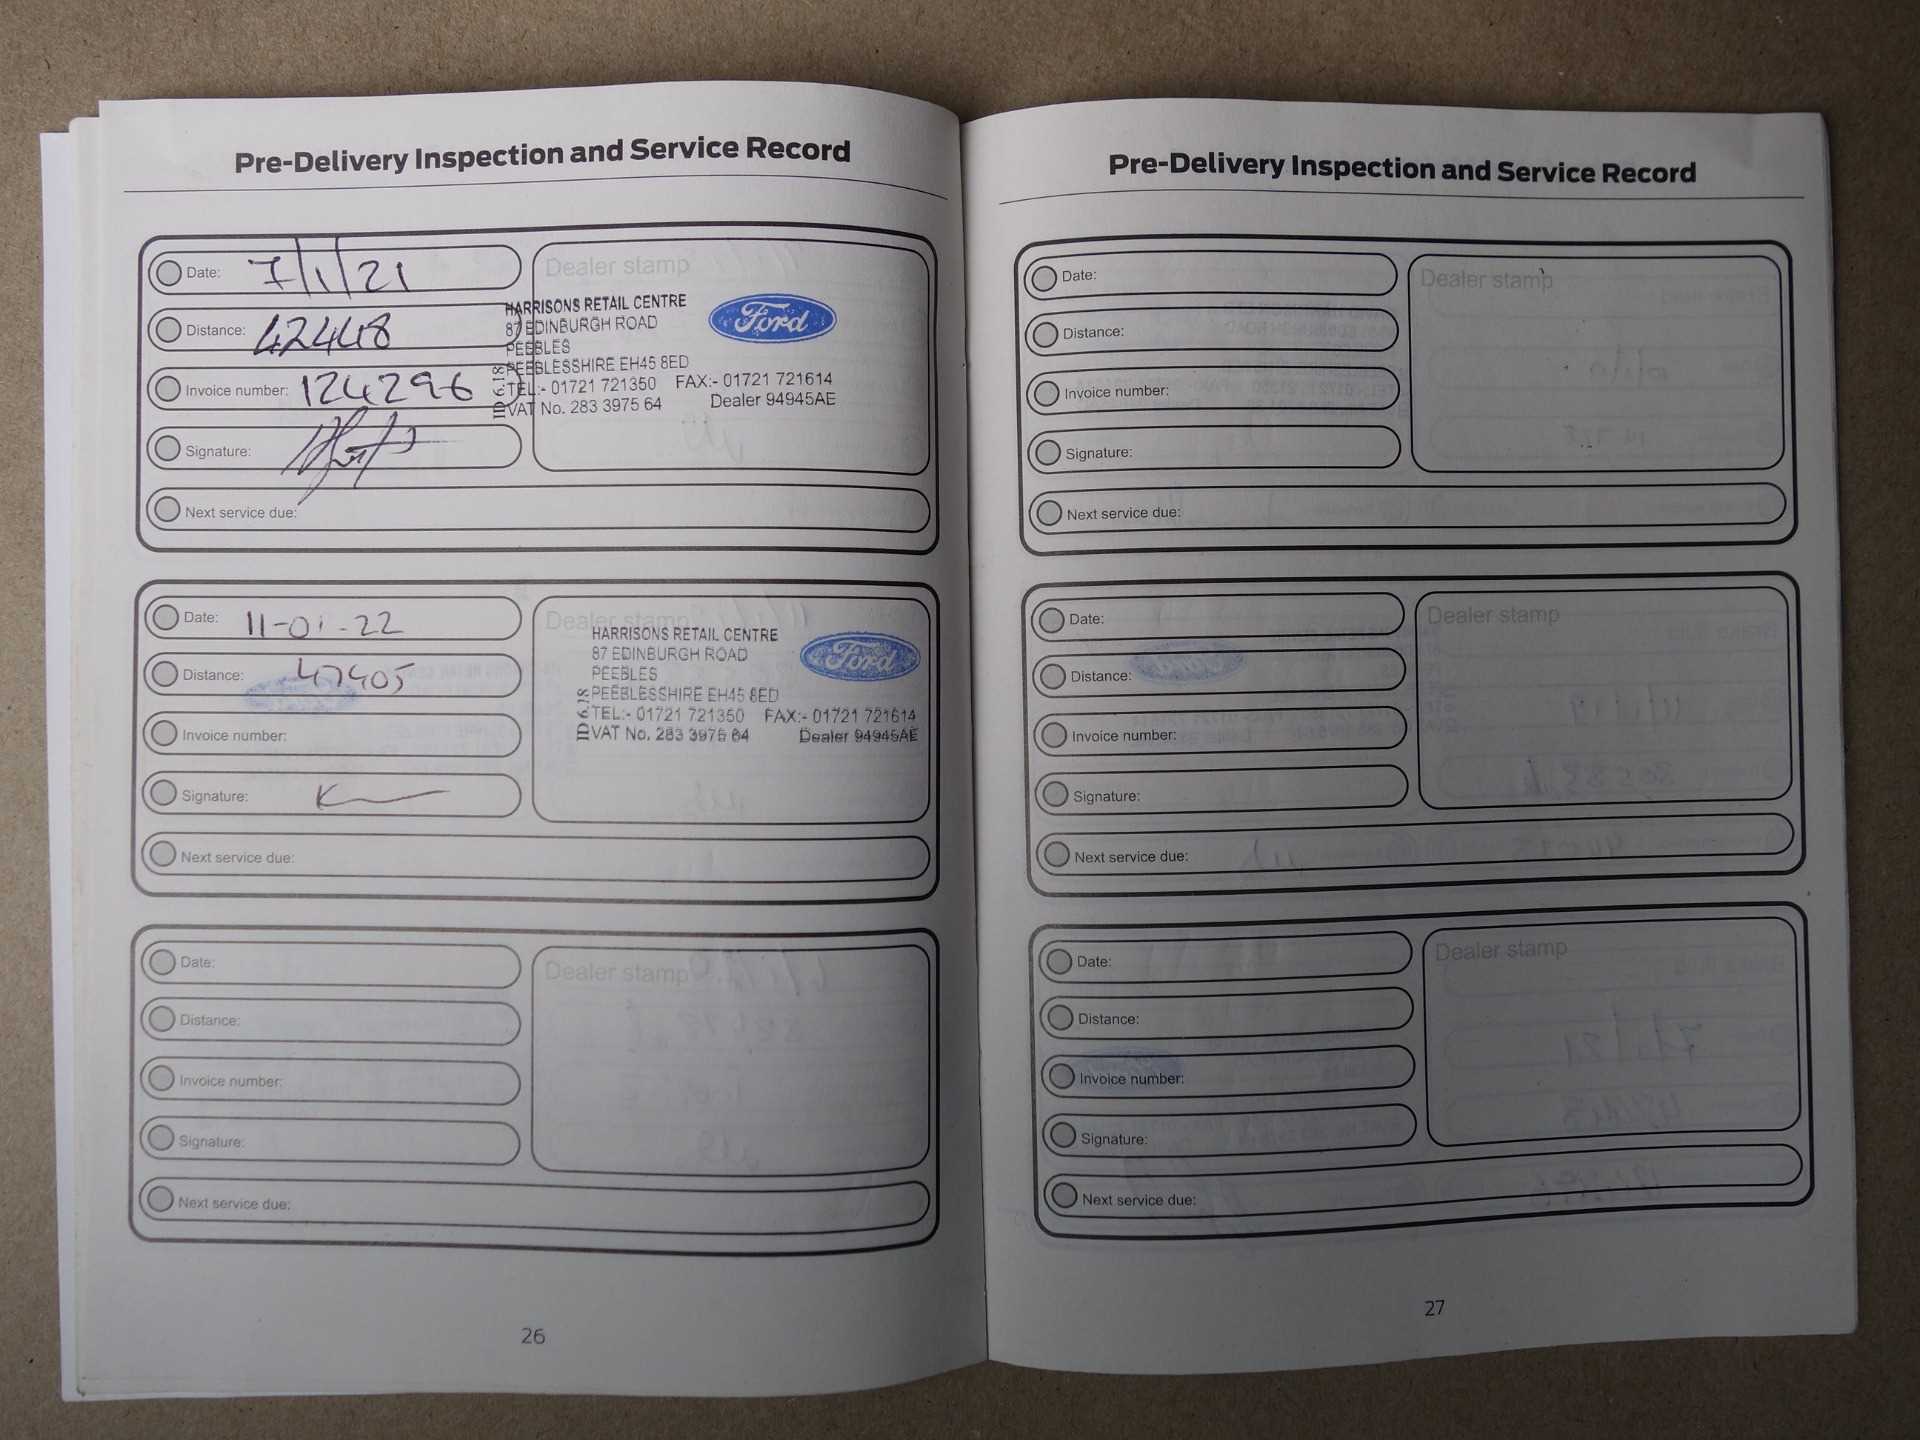 Pre-Delivery Inspection and Service Record
Date: 7/1/21
Distance: 42448
Invoice number: 124296
Signature:
Next service due:
Dealer stamp
HARRISONS RETAIL CENTRE
87 EDINBURGH ROAD
PEEBLES
PEEBLESSHIRE EH45 8ED
TEL:- 01721 721350 FAX:- 01721 721614
VAT No. 283 3975 64 Dealer 94945AE
ID 6.18
Ford
Date: 11-01-22
Distance: 47405
Invoice number:
Signature:
Next service due:
Dealer stamp
HARRISONS RETAIL CENTRE
87 EDINBURGH ROAD
PEEBLES
PEEBLESSHIRE EH45 8ED
TEL:- 01721 721350 FAX:- 01721 721614
VAT No. 283 3975 64 Dealer 94945AE
ID 6.18
Ford
Date:
Distance:
Invoice number:
Signature:
Next service due:
Dealer stamp
26
Pre-Delivery Inspection and Service Record
Date:
Distance:
Invoice number:
Signature:
Next service due:
Dealer stamp
Date:
Distance:
Invoice number:
Signature:
Next service due:
Dealer stamp
Date:
Distance:
Invoice number:
Signature:
Next service due:
Dealer stamp
27